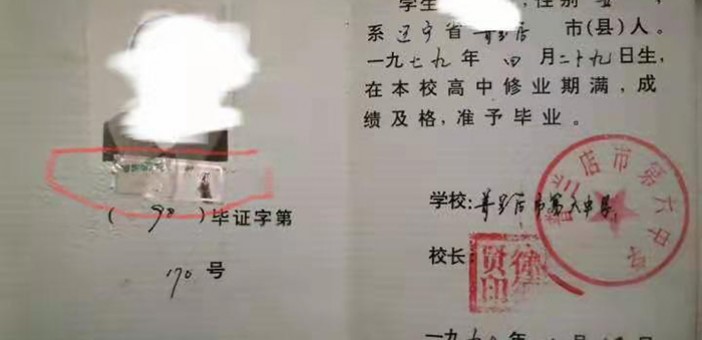 (90)毕证字第
170号
学生 ,性别 ,
系辽宁省普兰店市(县)人。
一九七九年四月二十九日生,
在本校高中修业期满,成
绩及格,准予毕业。
学校:普兰店市第六中学
校长
贤印
店市第六中学
一九九 年 月 日